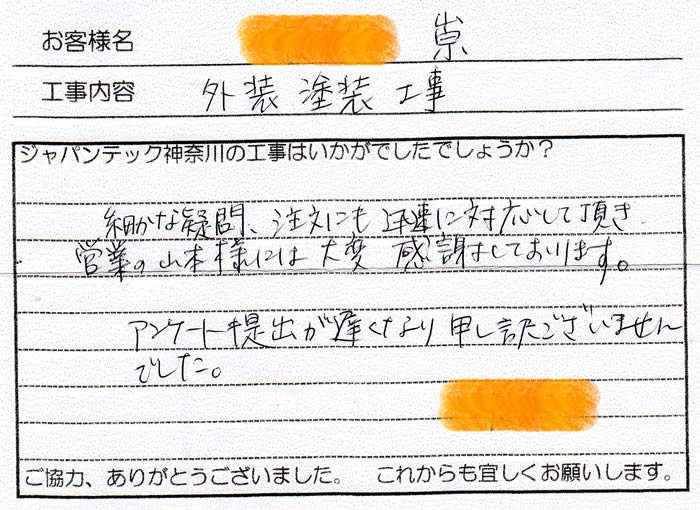 お客様名 崇
工事内容 外装塗装工事
ジャパンテック神奈川の工事はいかがでしたでしょうか？
細かな疑問、注文にも迅速に対応して頂き
営業の山本様には大変感謝しております。
アンケート提出が遅くなり申し訳ございません
でした。
ご協力、ありがとうございました。 これからも宜しくお願いします。